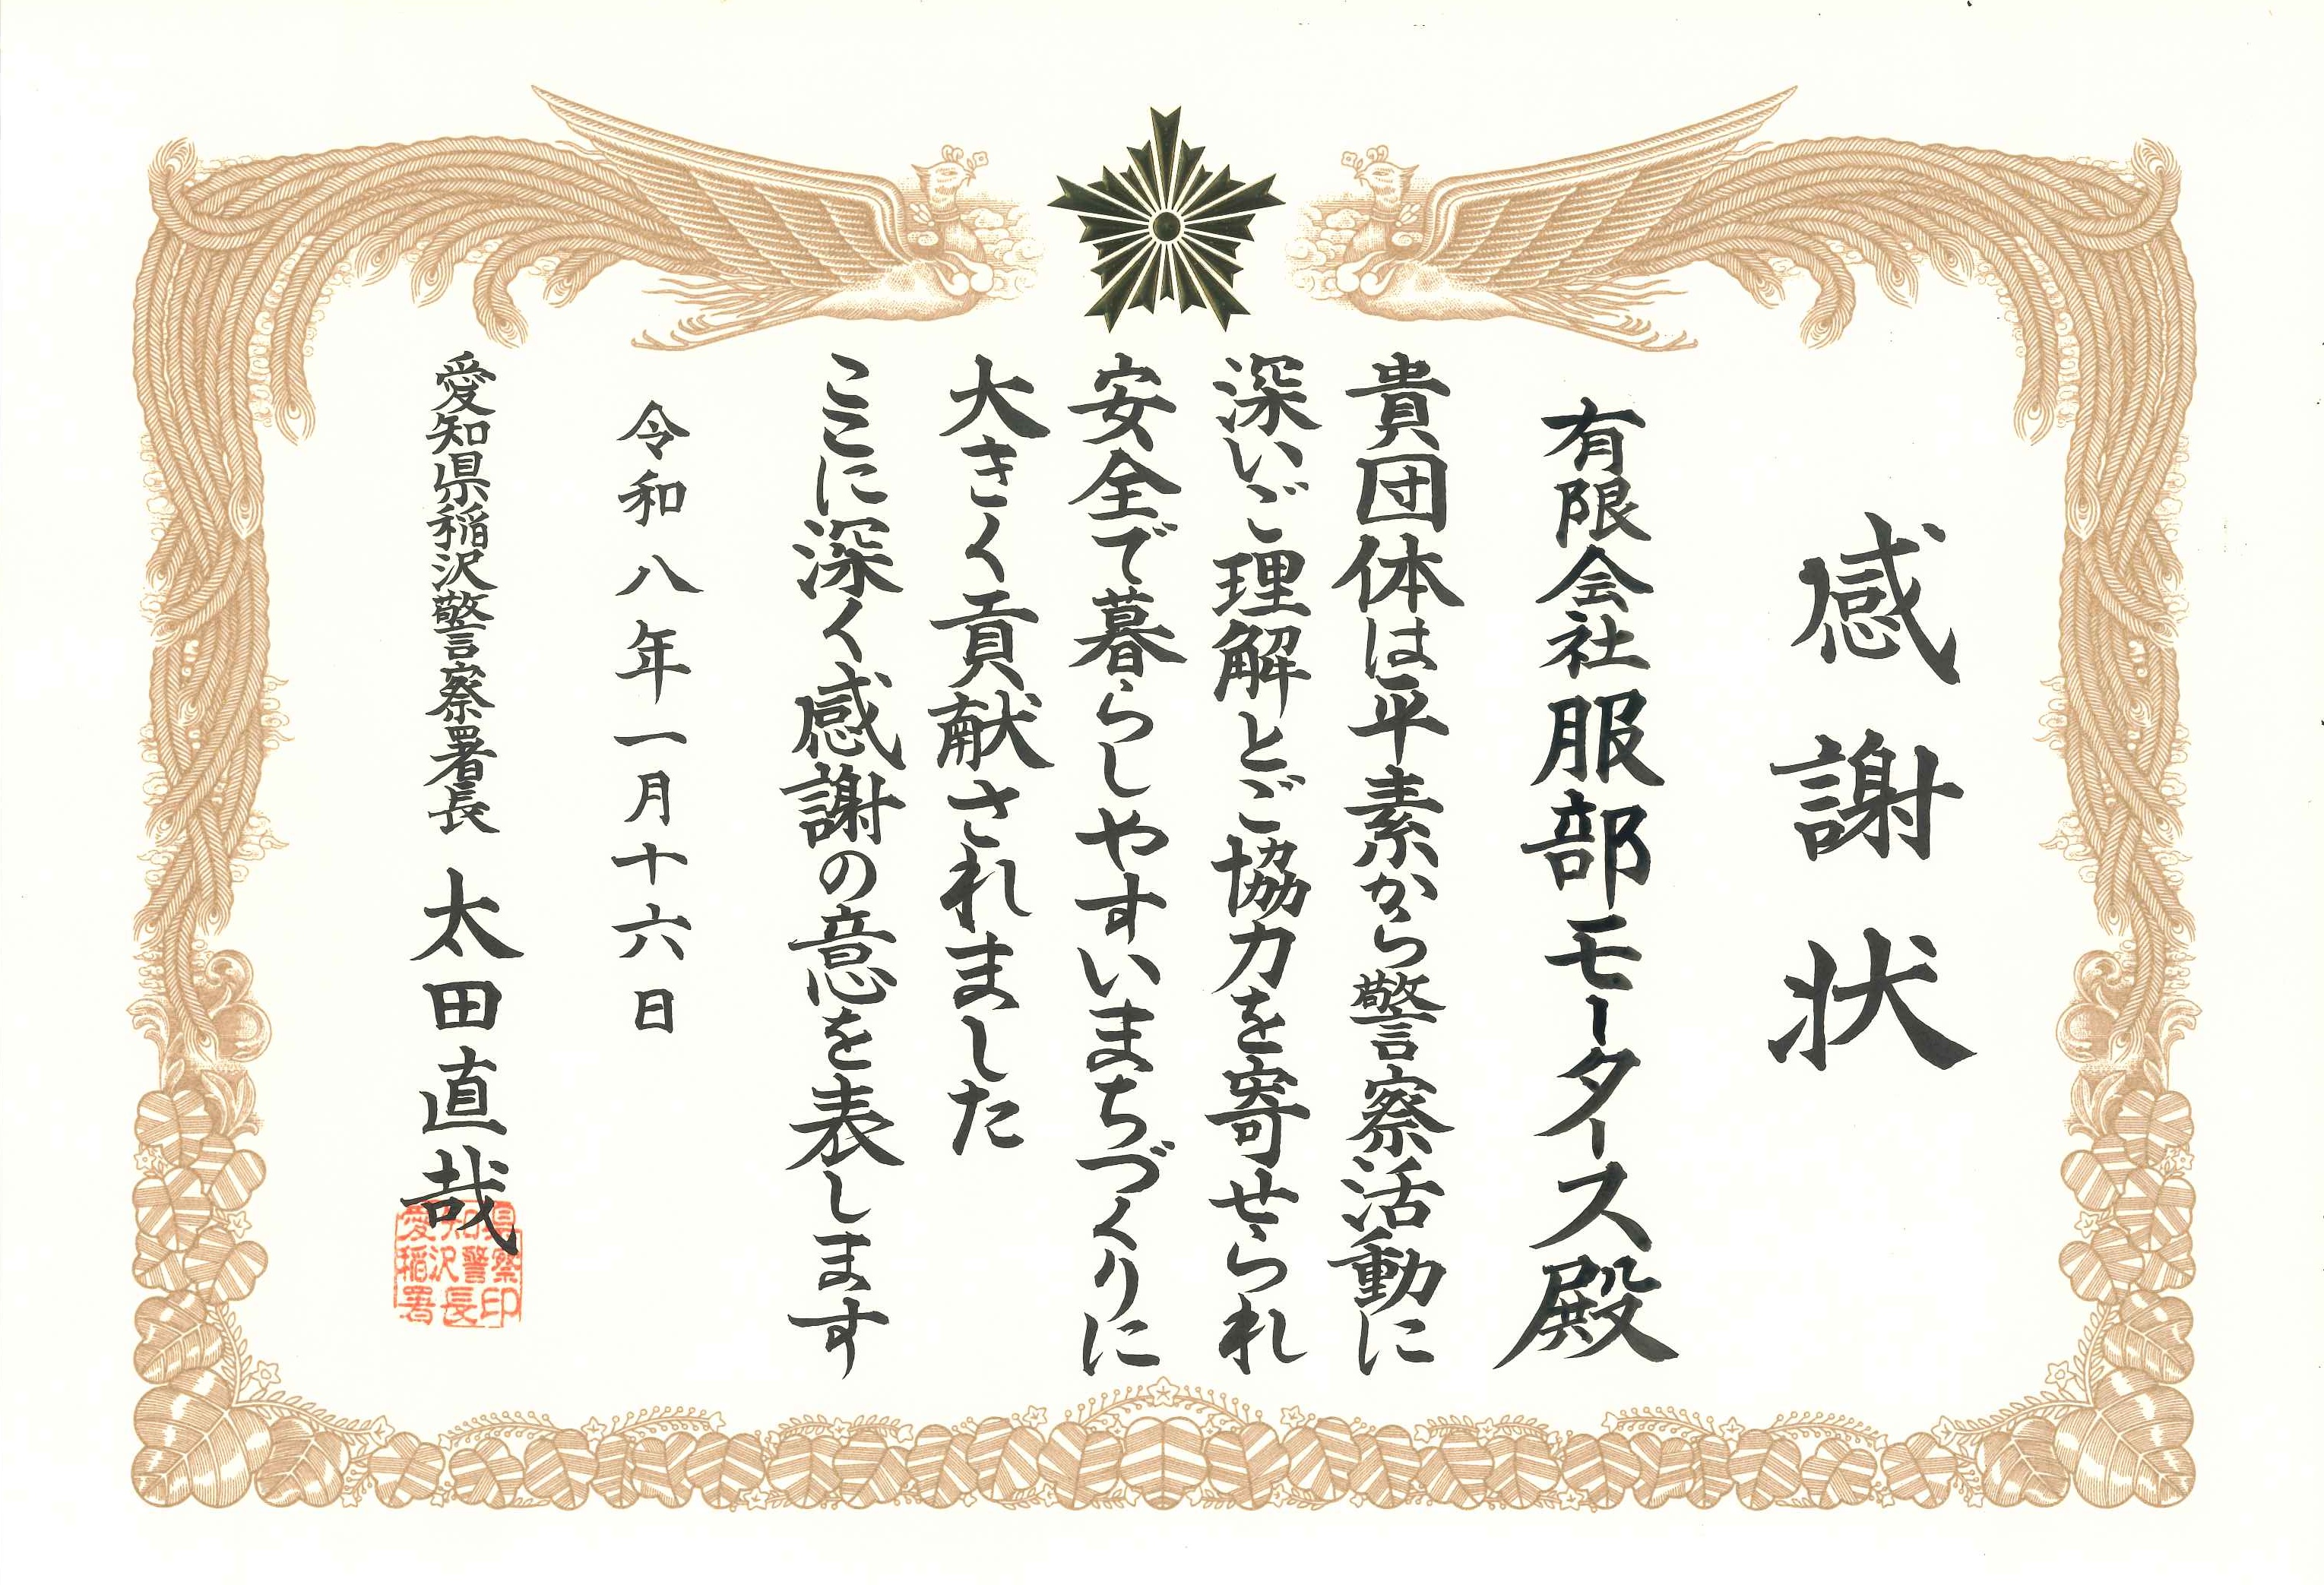 感謝状
有限会社服部モータース殿
貴団体は平素から警察活動に
深いご理解とご協力を寄せられ
安全で暮らしやすいまちづくりに
大きく貢献されました
ここに深く感謝の意を表します
令和八年一月十六日
愛知県稲沢警察署長 太田直哉
愛知県
稲沢警察
署長印